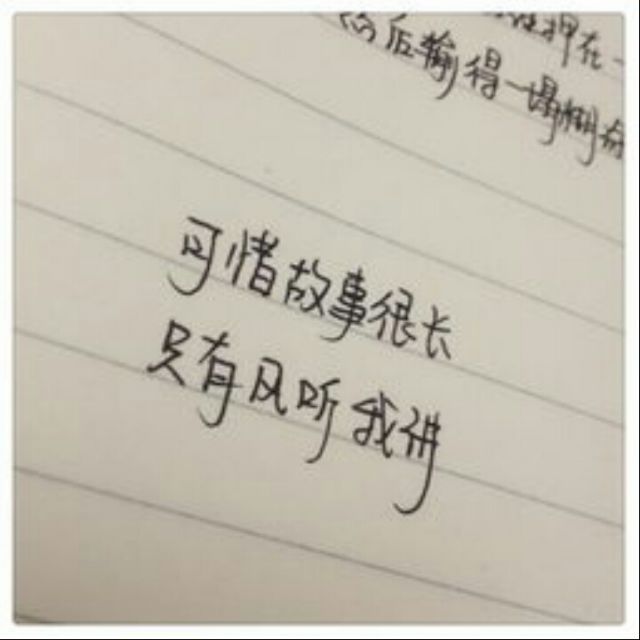 押在一
后输得一塌糊
可惜故事很长
只有风听我讲